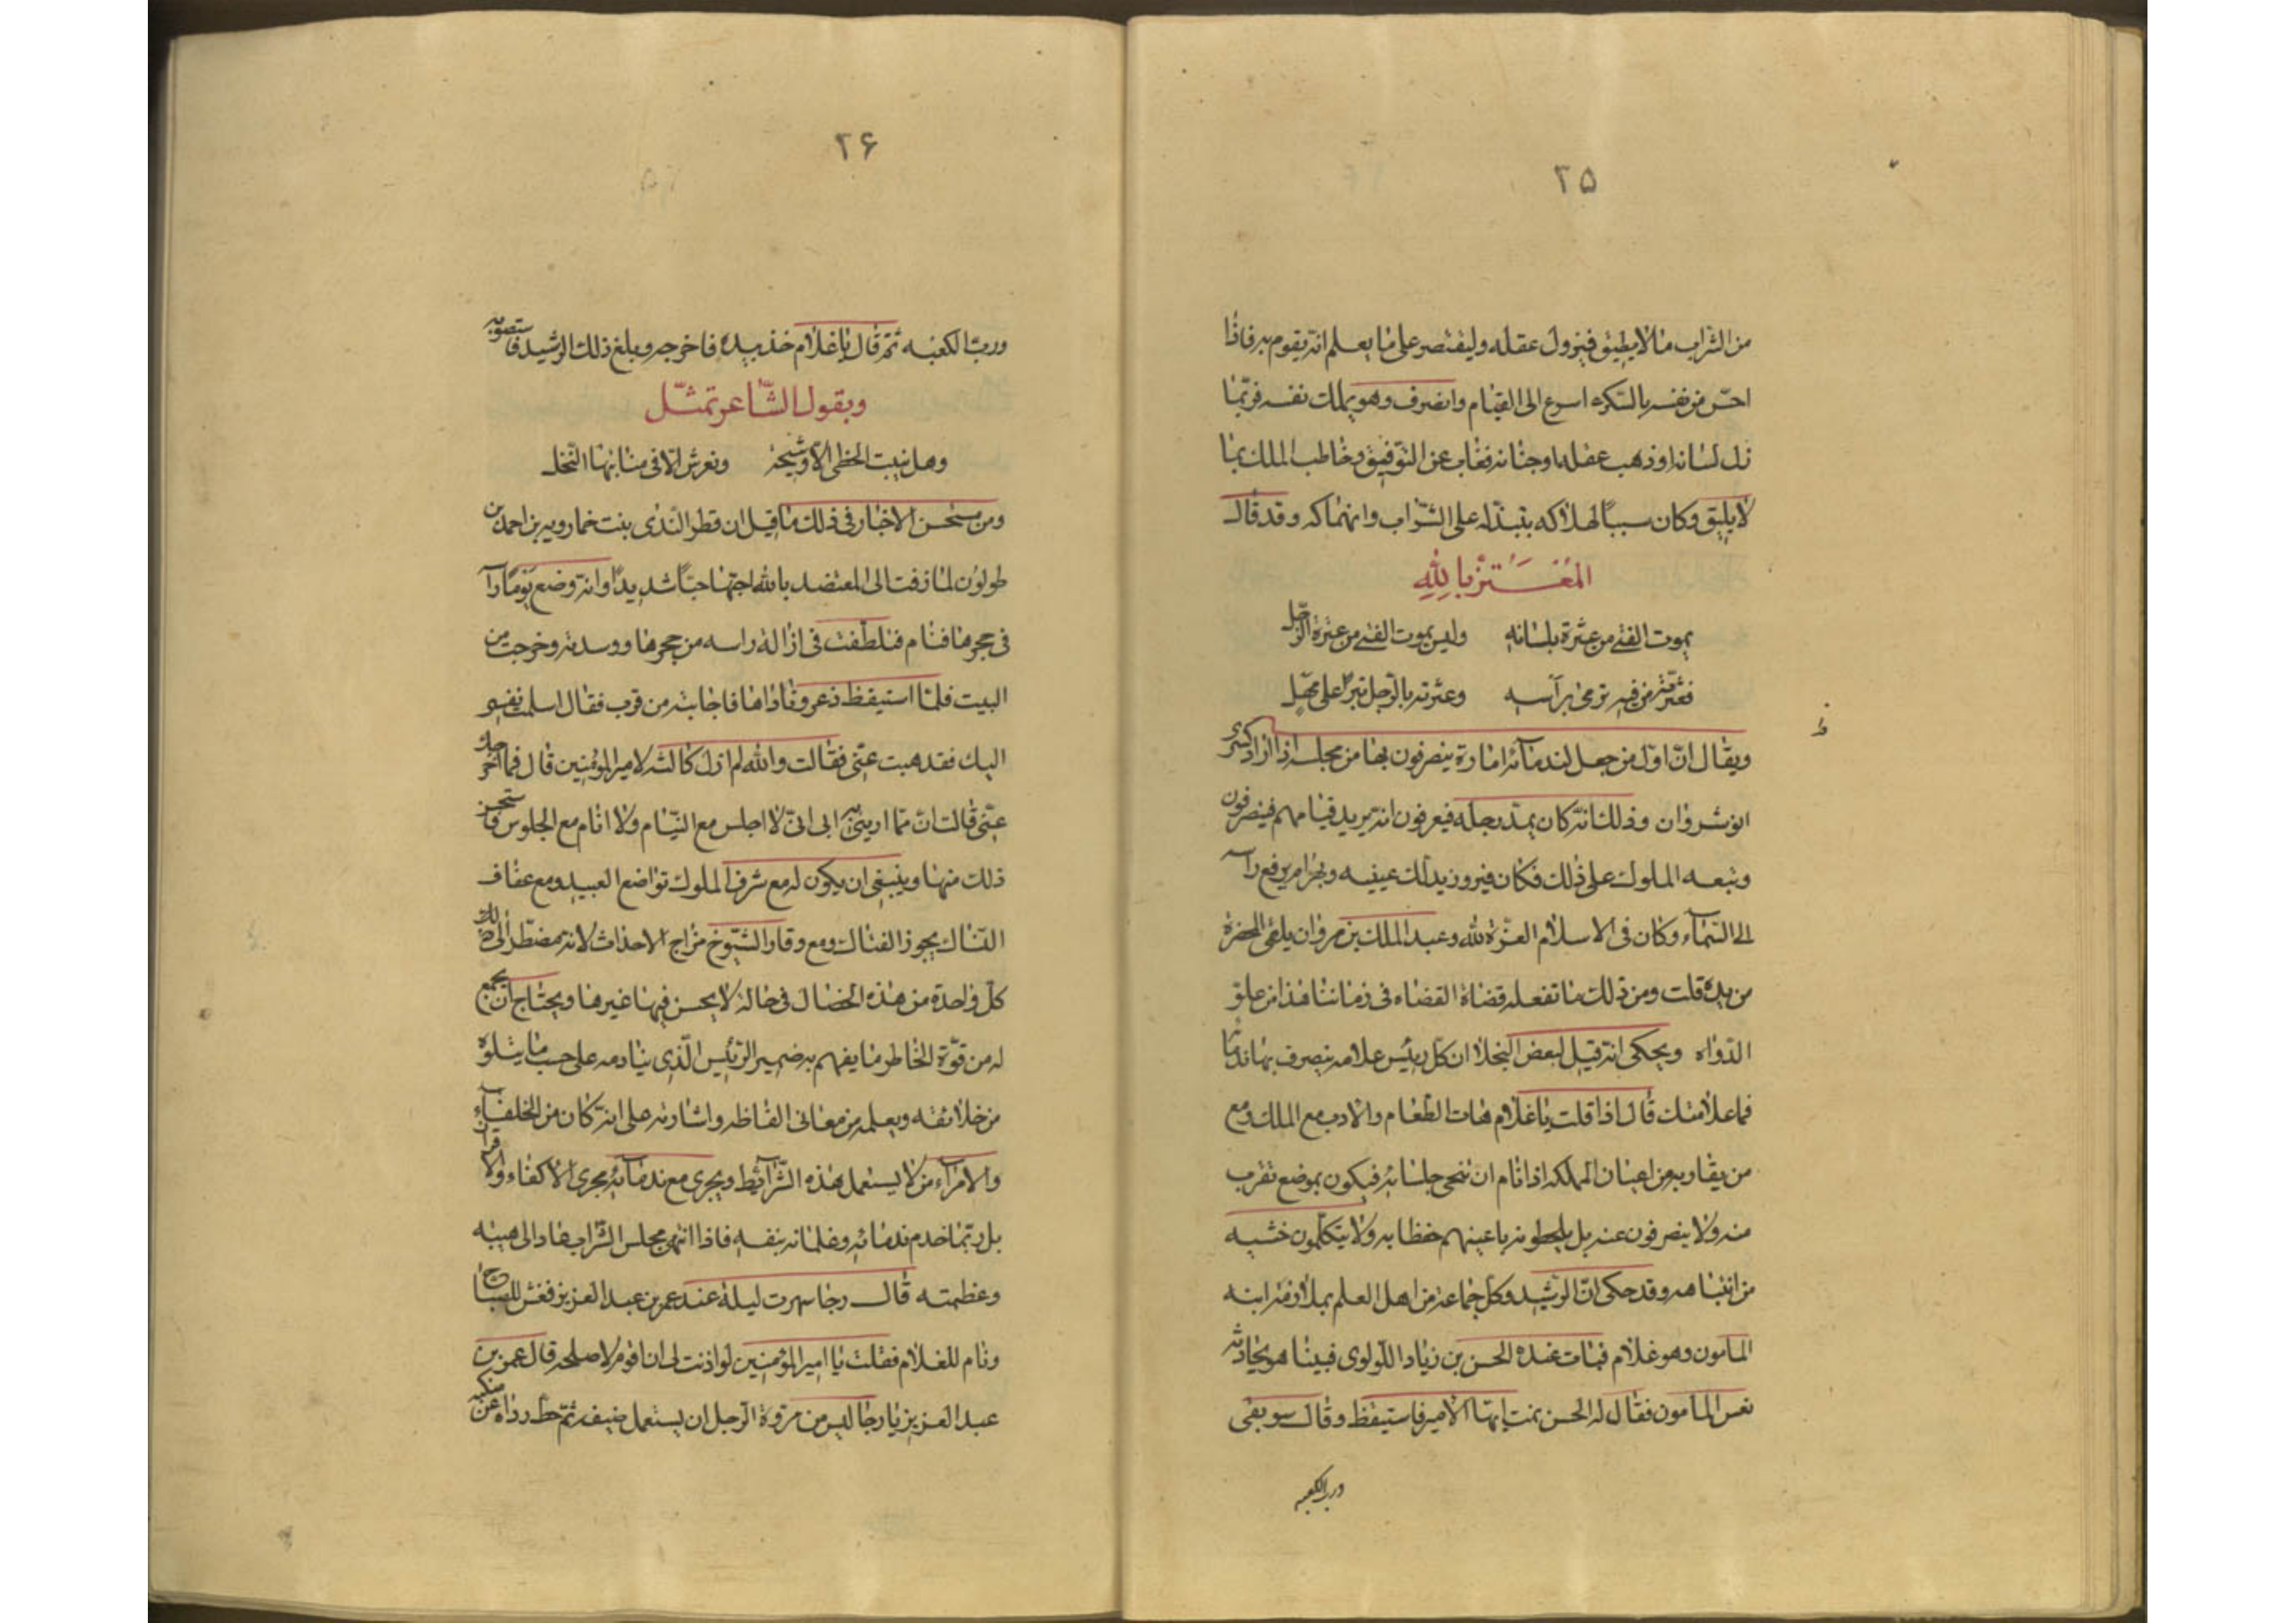 ٢۵
من الشراب ما لا يطيق فيزول عقله وليقتصر على ما يعلم انه يقوم به فاذا
احس من نفسه بالسكره اسرع الى القيام وانصرف وهو يملك نفسه فربما
زل لسانه او ذهب عقله وجنانه فغاب عن التوفيق وخاطب الملك بما
لا يليق وكان سببا لهلاكه بتبذله على الشراب وانهماكه وقد قال
المعتز بالله
يموت الفتى من عثرة بلسانه وليس يموت الفتى من عثرة الرجل
فعثرته من فيه ترمى برأسه وعثرته بالرجل تبرا على مهل
ويقال ان اول من جعل لندمآئه امارة ينصرفون بها من مجلسه اذا اراد كسرى
انوشروان وذلك انه كان يمد رجله فيعرفون انه يريد قيامهم فينصرفون
وتبعه الملوك على ذلك فكان فيروز يدلك عينيه وبهرام يرفع راسه
الى السمآء وكان فى الاسلام العزة لله وعبد الملك بن مروان يلقى المخصرة
من يده قلت ومن ذلك ما تفعله قضاة القضاء فى زماننا هذا من غلق
الدواه ويحكى انه قيل لبعض البخلا ان كل رئيس علامه ينصرف بها ندمآ
فما علامتك قال اذا قلت يا غلام هات الطعام والادب مع الملك ومع
من يقاربه من اعيان المملكه اذا نام ان تنحى جلسائه فيكون بموضع تقرب
منه ولا ينصرفون عنه بل يلحظونه باعينهم حفظا به ولا يتكلمون خشيه
من انتباهه وقد حكى ان الرشيد وكل جماعة من اهل العلم بملازمة ابنه
المامون وهو غلام فبات عنده الحسن بن زياد اللولوى فبينا هو يحادثه
نعس المامون فقال له الحسن نمت ايها الامير فاستيقظ وقال سوبقى
ورب الكعبه
٢۶
ورب الكعبه ثم قال يا غلام خذ بيده فاخرجه وبلغ ذلك الرشيد فاستصوبه
وبقول الشاعر تمثل
وهل ينبت الخطى الا وشيجه وتغرش الا فى منابتها النخل
ومن مستحسن الاخبار فى ذلك ما قيل ان قطر الندى بنت خمارويه بن احمد بن
طولون لما زفت الى المعتضد بالله احبها حبا شديدا وانه وضع يوما راسه
فى حجرها فنام فتلطفت فى ازالة راسه من حجرها ووسدته وخرجت من
البيت فلما استيقظ ذعر وناداها فاجابته من قرب فقال اسلمت نفسى
اليك فقد هبت عنى فقالت والله لم ازل كالئة لامير المؤمنين قال فما اخرجك
عنى قالت ان مما ادبنى به ابى انى لا اجلس مع النيام ولا انام مع الجلوس فاستحسن
ذلك منها وينبغى ان يكون له مع شرف الملوك تواضع العبيد ومع عفاف
النساك مجون الفتاك ومع وقار الشيوخ مزاح الاحداث لانه يضطر الى ذلك
كل واحدة من هذه الخصال فى حالة لا يحسن فيها غيرها ويحتاج ان يجتمع
له من قوة الخاطر ما يفهم به ضمير الرئيس الذى ينادمه على حسب ما يتلوه
من خلائقه ويعلمه من معانى الفاظه واشارته على انه كان من الخلفآء
والامرآء من لا يستعمل هذه الشرآئط ويجرى مع ندمآئه مجرى الاكفاء والاقران
بل ربما خدم ندمائه وغلمانه بنفسه فاذا انتهى مجلس الشراب عاد الى هيبته
وعظمته قال رجا سهرت ليلة عند عمر بن عبد العزيز فغش المصباح
ونام الغلام فقلت يا امير المؤمنين لو اذنت لى ان اقوم لاصلحه قال عمر بن
عبد العزيز يا رجا ليس من مروة الرجل ان يستعمل ضيفه ثم حط رداه عن منكبه